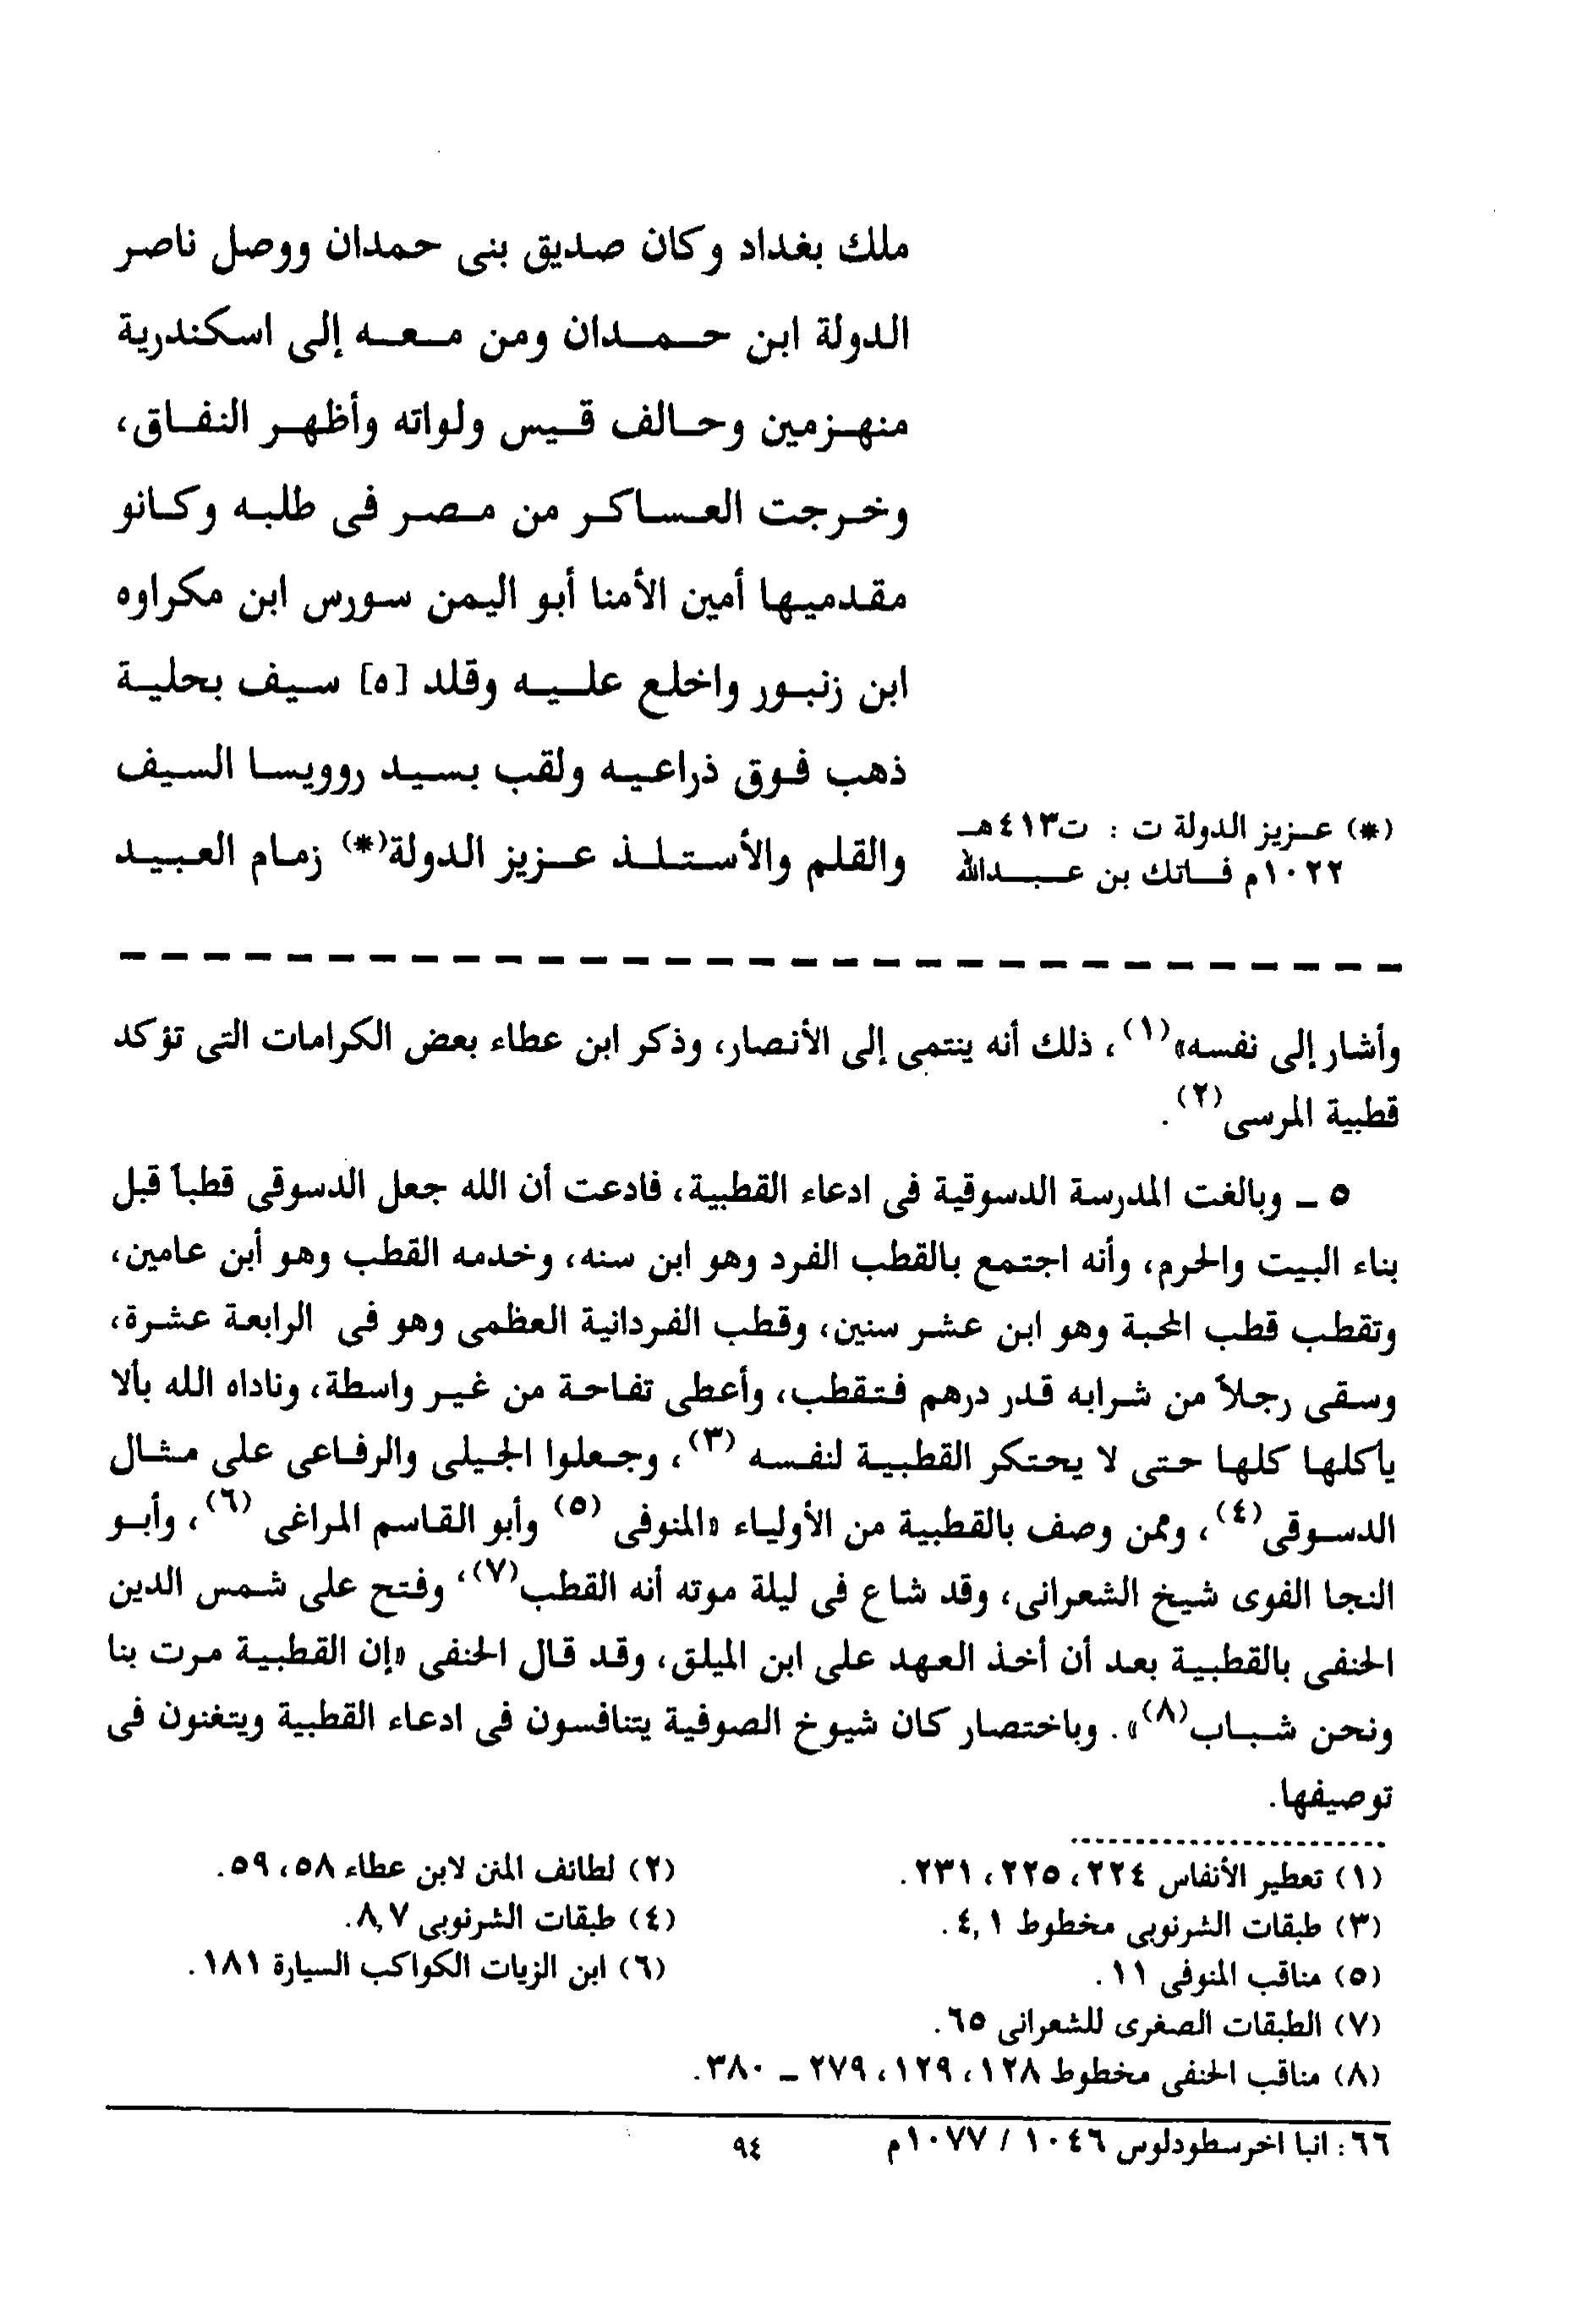 ملك بغداد وكان صديق بنى حمدان ووصل ناصر
الدولة ابن حمدان ومن معه إلى اسكندرية
منهزمين وحالف قيس ولواته وأظهر النفاق،
وخرجت العساكر من مصر فى طلبه وكانو
مقدميها أمين الأمنا أبو اليمن سورس ابن مكراوه
ابن زنبور واخلع عليه وقلد [٥] سيف بحلية
ذهب فوق ذراعيه ولقب بسيد روويسا السيف
والقلم والأستلذ عزيز الدولة(*) زمام العبيد
(*) عزيز الدولة ت : ت٤١٣هـ
١٠٢٢م فاتك بن عبدالله
وأشار إلى نفسه»(١)، ذلك أنه ينتمى إلى الأنصار، وذكر ابن عطاء بعض الكرامات التى تؤكد
قطبية المرسى(٢).
٥ ـ وبالغت المدرسة الدسوقية فى ادعاء القطبية، فادعت أن الله جعل الدسوقى قطباً قبل
بناء البيت والحرم، وأنه اجتمع بالقطب الفرد وهو ابن سنه، وخدمه القطب وهو أبن عامين،
وتقطب قطب المحبة وهو ابن عشر سنين، وقطب الفردانية العظمى وهو فى الرابعة عشرة،
وسقى رجلاً من شرابه قدر درهم فتقطب، وأعطى تفاحة من غير واسطة، وناداه الله بألا
يأكلها كلها حتى لا يحتكر القطبية لنفسه (٣)، وجعلوا الجيلى والرفاعى على مثال
الدسوقى(٤)، وممن وصف بالقطبية من الأولياء «المنوفى (٥) وأبو القاسم المراغى (٦)، وأبو
النجا الفوى شيخ الشعرانى، وقد شاع فى ليلة موته أنه القطب(٧)، وفتح على شمس الدين
الحنفى بالقطبية بعد أن أخذ العهد على ابن الميلق، وقد قال الحنفى «إن القطبية مرت بنا
ونحن شباب(٨)». وباختصار كان شيوخ الصوفية يتنافسون فى ادعاء القطبية ويتغنون فى
توصيفها.
(١) تعطير الأنفاس ٢٢٤، ٢٢٥، ٢٣١.
(٢) لطائف المنن لابن عطاء ٥٨، ٥٩.
(٣) طبقات الشرنوبى مخطوط ٤,١.
(٤) طبقات الشرنوبى ٨,٧.
(٥) مناقب المنوفى ١١.
(٦) ابن الزيات الكواكب السيارة ١٨١.
(٧) الطبقات الصغرى للشعرانى ٦٥.
(٨) مناقب الحنفى مخطوط ١٢٨، ١٢٩، ٢٧٩ ـ ٣٨٠.
٦٦: انبا اخرسطودلوس ١٠٤٦ / ١٠٧٧م
٩٤